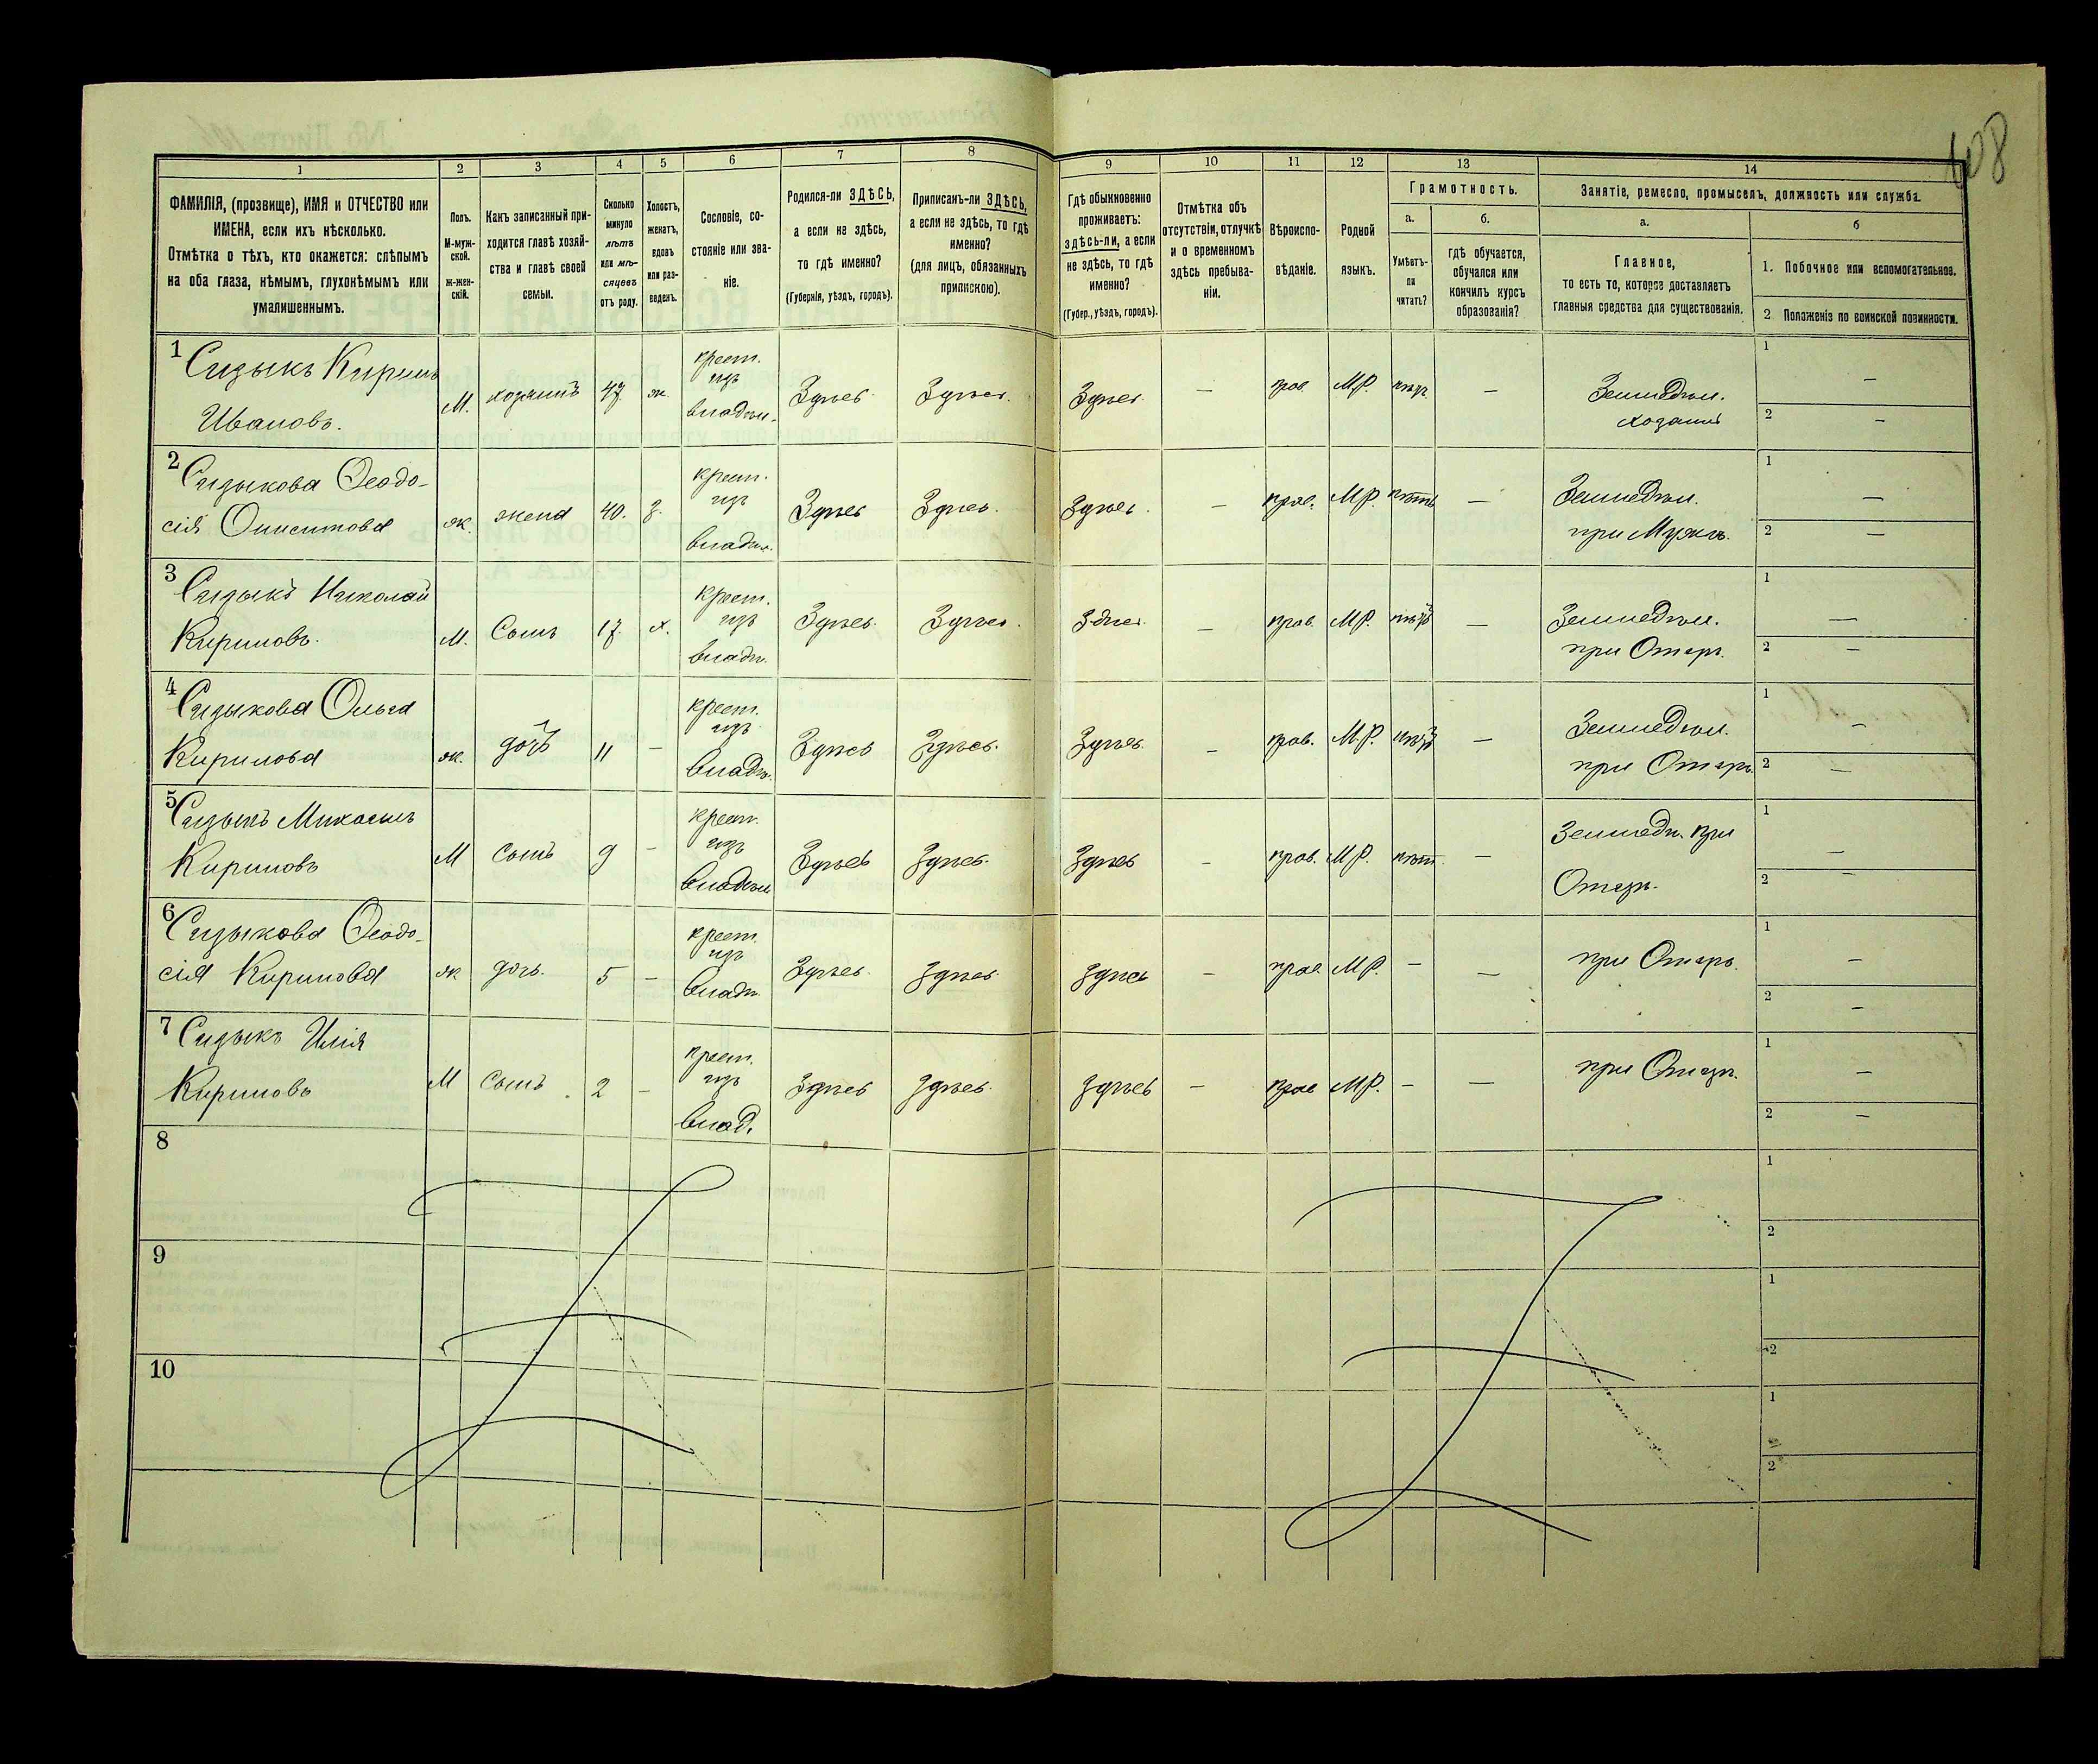 608
1
2
3
4
5
6
7
8
9
10
11
12
13
14
ФАМИЛІЯ, (прозвище), ИМЯ и ОТЧЕСТВО или
ИМЕНА, если ихъ нѣсколько.
Отмѣтка о тѣхъ, кто окажется: слѣпымъ
на оба глаза, нѣмымъ, глухонѣмымъ или
умалишеннымъ.
Полъ.
М-муж-
ской.
ж-жен-
скій.
Какъ записанный при-
ходится главѣ хозяй-
ства и главѣ своей
семьи.
Сколько
минуло
лѣтъ
или мѣ-
сяцевъ
отъ роду.
Холостъ,
женатъ,
вдовъ
или раз-
веденъ.
Сословіе, со-
стояніе или зва-
ніе.
Родился-ли ЗДѢСЬ,
а если не здѣсь,
то гдѣ именно?
(Губернія, уѣздъ, городъ).
Приписанъ-ли ЗДѢСЬ,
а если не здѣсь, то гдѣ
именно?
(для лицъ, обязанныхъ
припискою).
Гдѣ обыкновенно
проживаетъ:
здѣсь-ли, а если
не здѣсь, то гдѣ
именно?
(Губер., уѣздъ, городъ).
Отмѣтка объ
отсутствіи, отлучкѣ
и о временномъ
здѣсь пребыва-
ніи.
Вѣроиспо-
вѣданіе.
Родной
языкъ.
Грамотность.
а.
Умѣетъ-
ли
читать?
б.
гдѣ обучается,
обучался или
кончилъ курсъ
образованія?
Занятіе, ремесло, промыселъ, должность или служба.
а.
Главное,
то есть то, которое доставляетъ
главныя средства для существованія.
б
1. Побочное или вспомогательное.
2 Положеніе по воинской повинности.
1 Сизыкъ Кирилъ
Ивановъ.
М. хозяинъ 47 ж. крест.
изъ
владѣл. Здѣсь Здѣсь. Здѣсь — прав. МР. нѣтъ — Земледѣл.
хозяинъ
1 —
2 —
2 Сизыкова Ѳеодо-
сія
ж. жена 40. з. крест.
изъ
владѣл. Здѣсь Здѣсь. Здѣсь — прав. МР. нѣтъ — Земледѣл.
при Мужѣ.
1 —
2 —
3 Сизыкъ Николай
Кириловъ.
М. Сынъ 17. х. крест.
изъ
владѣ. Здѣсь Здѣсь. Здѣсь — прав. МР. нѣтъ — Земледѣл.
при Отцѣ.
1 —
2 —
4 Сизыкова Ольга
Кирилова
ж. дочь 11 — крест.
изъ
владѣ. Здѣсь Здѣсь. Здѣсь — прав. МР. нѣтъ — Земледѣл.
при Отцѣ.
1 —
2 —
5 Сизыкъ
Кириловъ
М сынъ 9 — крест.
изъ
владѣл Здѣсь Здѣсь. Здѣсь — прав. МР. нѣт. — Земледѣ. при
Отцѣ.
1 —
2 —
6 Сизыкова Ѳеодо-
сія Кирилова
ж дочь. 5 — крест.
изъ
владѣ. Здѣсь. Здѣсь Здѣсь — прав МР. — — при Отцѣ.
1 —
2 —
7 Сизыкъ Илія
Кириловъ
М Сынъ. 2 — крест.
изъ
влад. Здѣсь Здѣсь. Здѣсь — прав МР. — — при Отцѣ.
1 —
2 —
8
1
2
9
1
2
10
1
2